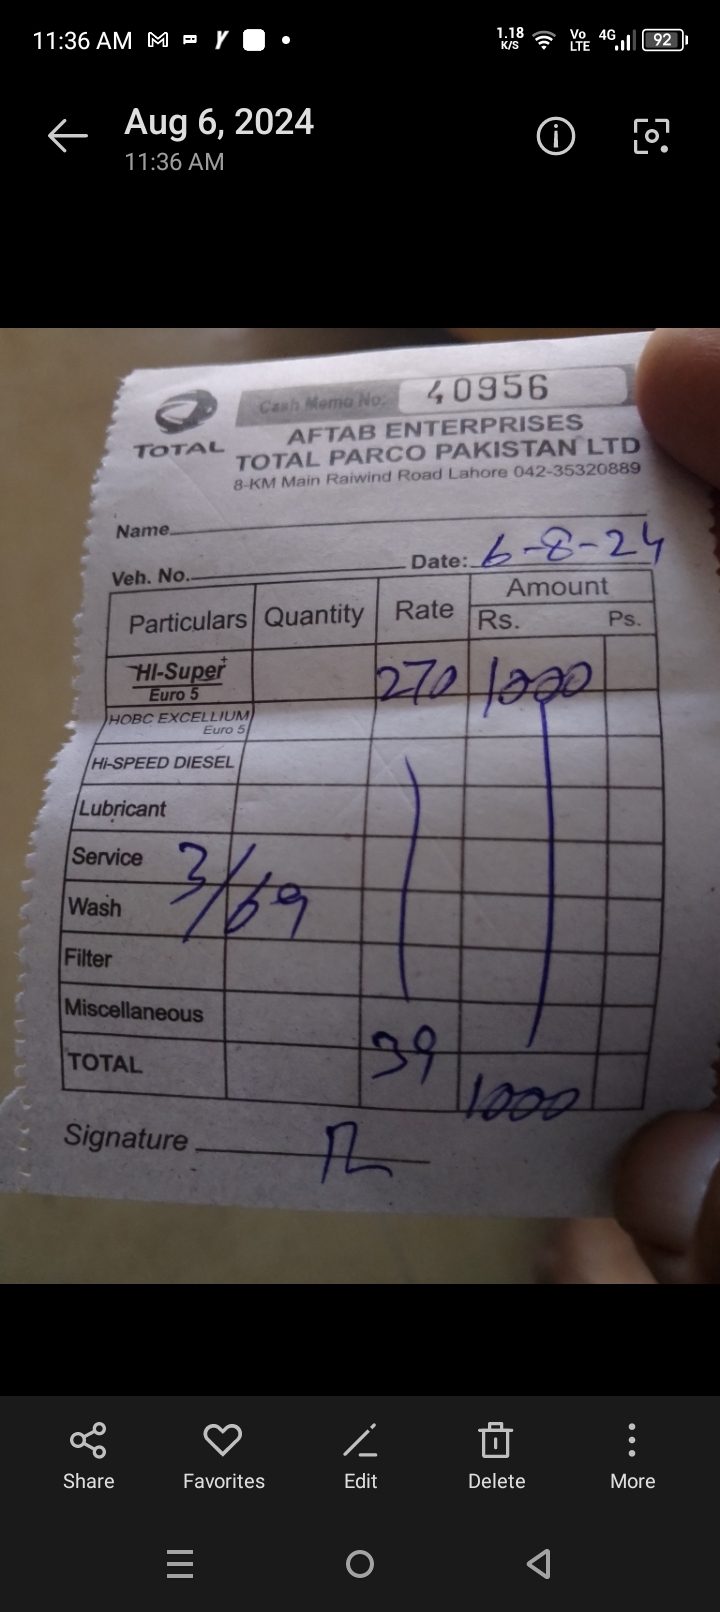 11:36 AM
1.18 K/S Vo LTE 4G 92
Aug 6, 2024
11:36 AM
Cash Memo No: 40956
TOTAL
AFTAB ENTERPRISES
TOTAL PARCO PAKISTAN LTD
8-KM Main Raiwind Road Lahore 042-35320889
Name
Veh. No. Date: 6-8-24
Particulars Quantity Rate Amount
Rs. Ps.
HI-Super+ 270 1000
Euro 5
HOBC EXCELLIUM
Euro 5
Hi-SPEED DIESEL
Lubricant
Service
3/69
Wash
Filter
Miscellaneous
39
TOTAL 1000
Signature
Share Favorites Edit Delete More